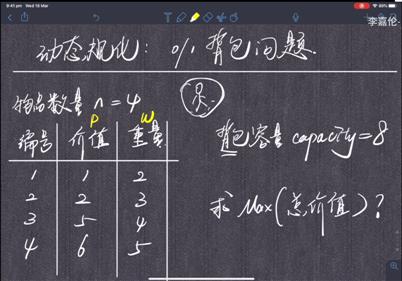 9:41 pm Wed 18 Mar
李嘉伦
动态规化: 0/1 背包问题.
物品数量 n = 4
P W
编号 价值 重量
1 1 2
2 2 3
3 5 4
4 6 5
背包容量 capacity=8
求 Max(总价值)?